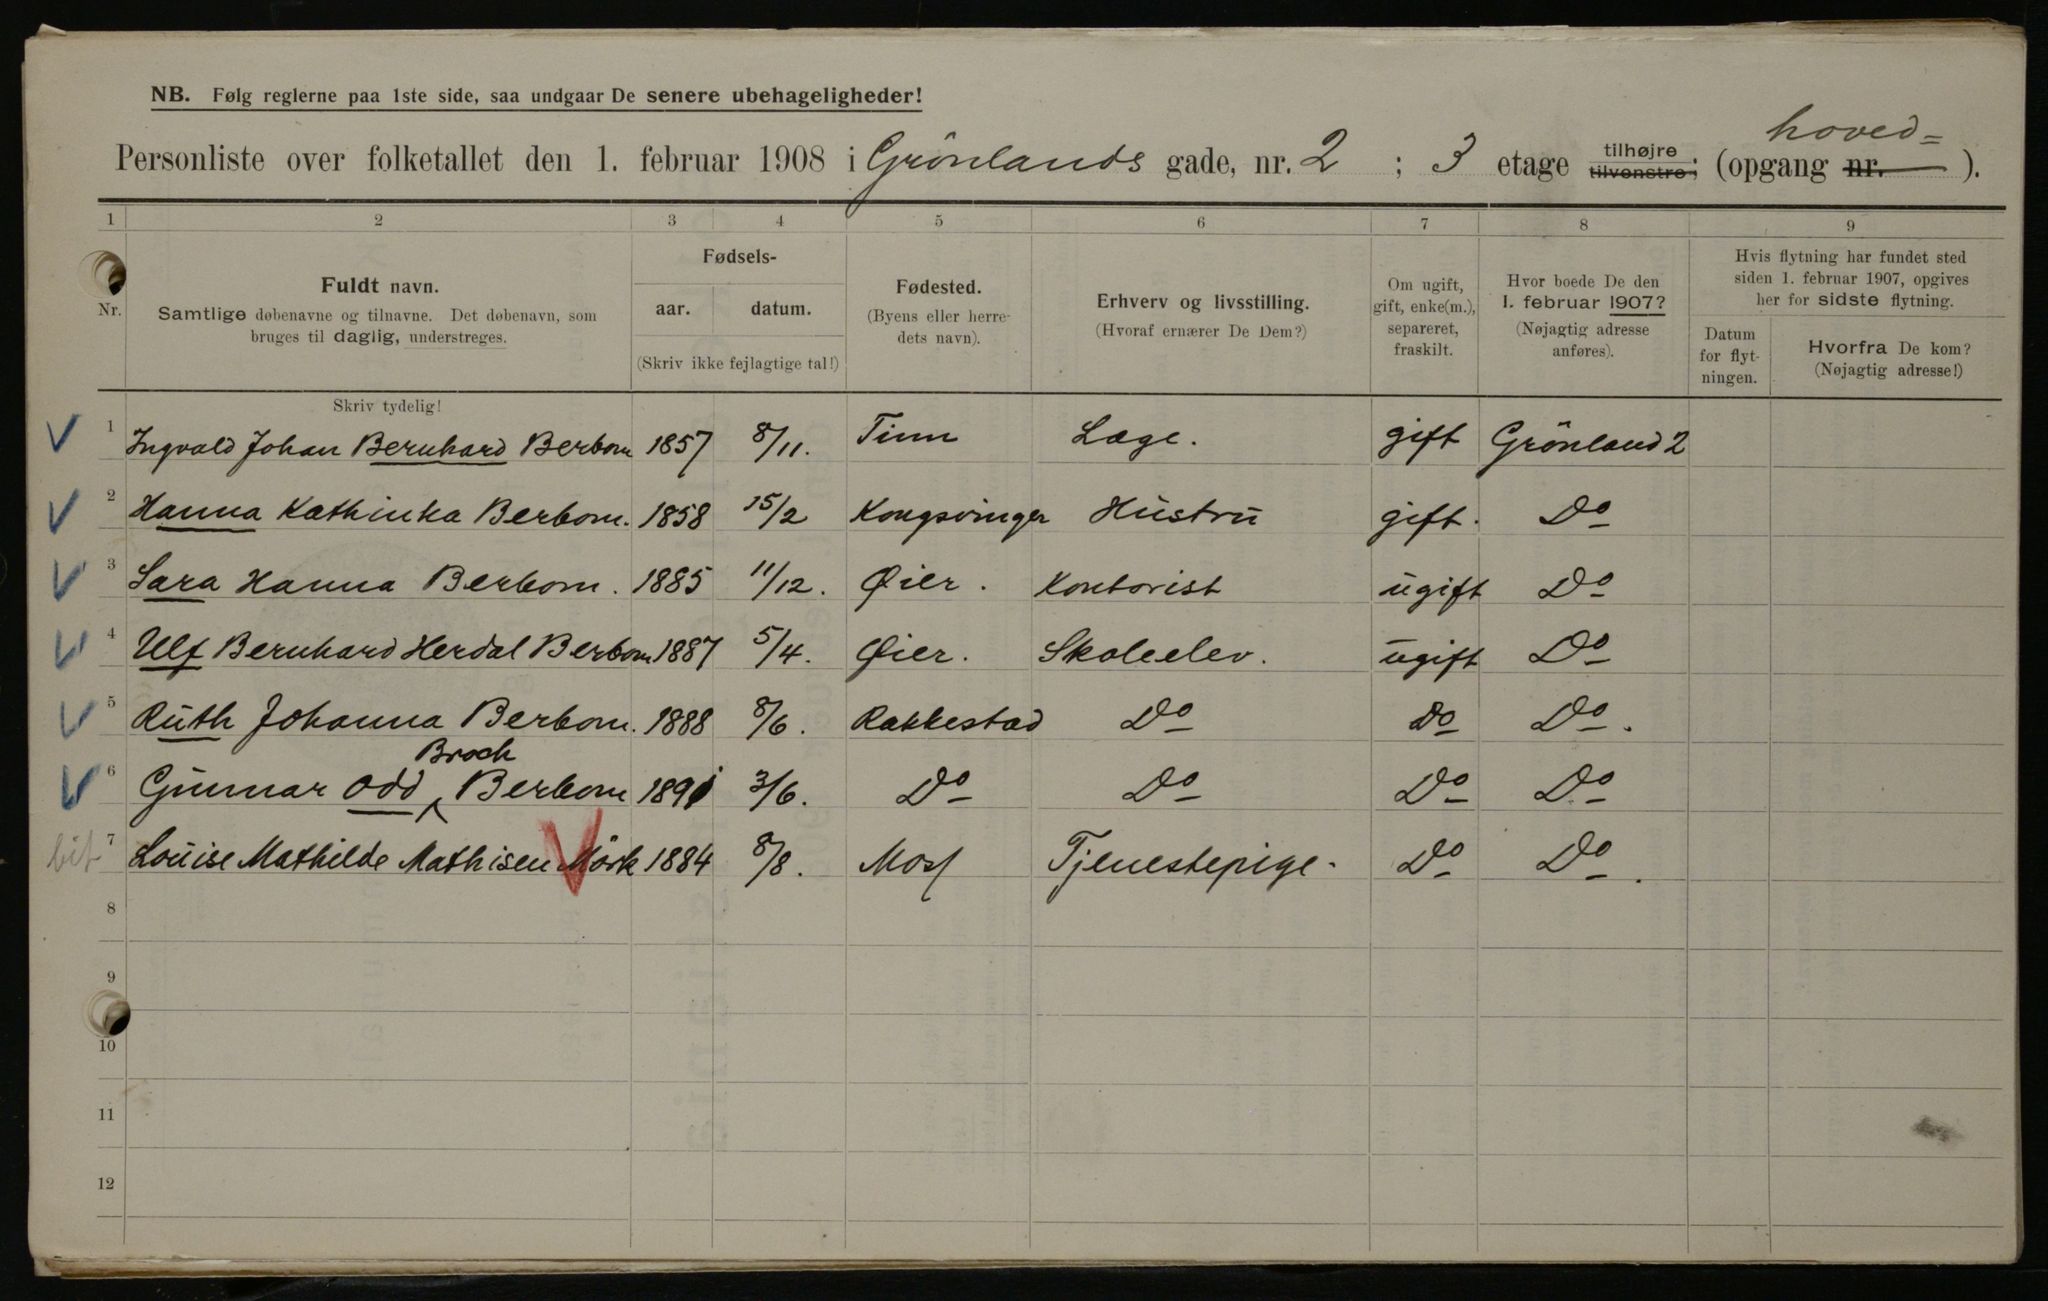 NB. Følg reglerne paa 1ste side, saa undgaar De senere ubehageligheder!
hoved=
Personliste over folketallet den 1. februar 1908 i Grönlands gade, nr. 2 ; 3 etage tilhøjre tilvenstre; (opgang nr. ).
1 2 3 4 5 6 7 8 9
Nr.
Fuldt navn.
Samtlige døbenavne og tilnavne. Det døbenavn, som
bruges til daglig, understreges.
Fødsels-
aar. datum.
(Skriv ikke fejlagtige tal!)
Fødested.
(Byens eller herre-
dets navn).
Erhverv og livsstilling.
(Hvoraf ernærer De Dem?)
Om ugift,
gift, enke(m.),
separeret,
fraskilt.
Hvor boede De den
1. februar 1907?
(Nøjagtig adresse
anføres).
Hvis flytning har fundet sted
siden 1. februar 1907, opgives
her for sidste flytning.
Datum
for flyt-
ningen.
Hvorfra De kom?
(Nøjagtig adresse!)
Skriv tydelig!
1 Ingvald Johan Bernhard Berbom 1857 8/11. Tinn Læge. gift Grönland 2
2 Hanna Kathinka Berbom. 1858 15/2 Kongsvinger Hustru gift. Do
3 Sara Hanna Berbom. 1885 11/12. Øier. Kontorist ugift Do
4 Ulf Bernhard Herdal Berbom 1887 5/4. Øier. Skoleelev. ugift Do
5 Ruth Johanna Berbom. 1888 8/6. Rakkestad Do Do Do.
Broch
6 Gunnar Odd Berbom 1891 3/6. Do Do Do Do
7 Louise Mathilde Mathisen Mörk 1884 8/8. Moss Tjenestepige. Do Do.
8
9
10
11
12